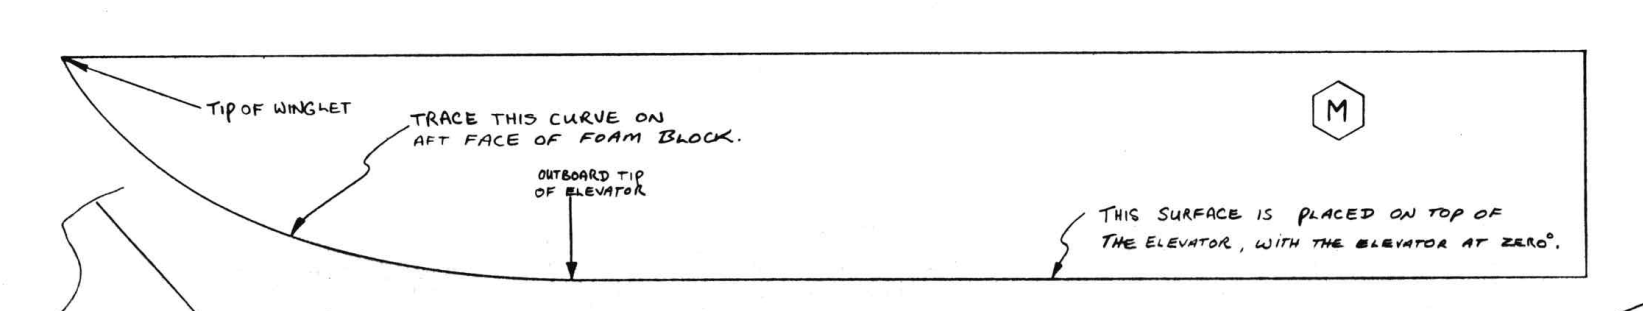 TIP OF WINGLET
TRACE THIS CURVE ON
AFT FACE OF FOAM BLOCK.
OUTBOARD TIP
OF ELEVATOR
M
THIS SURFACE IS PLACED ON TOP OF
THE ELEVATOR, WITH THE ELEVATOR AT ZERO°.